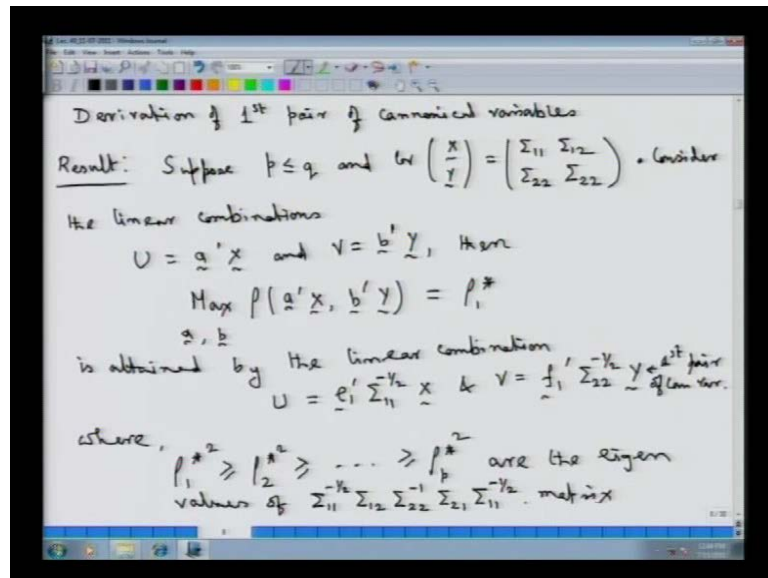 Lec. 40,12-07-2012 - Windows Journal
File Edit View Insert Actions Tools Help
Derivation of 1st pair of cannonical variables
Result: Suppose p ≤ q and Cov (X / Y) = (Σ11 Σ12 / Σ22 Σ22) . Consider
the linear combinations
U = a' X and V = b' Y, then
Max ρ(a' X, b' Y) = ρ1*
a, b
is attained by the linear combination
U = e1' Σ11^-1/2 X & V = f1' Σ22^-1/2 Y ← 1st pair of Can var.
where,
ρ1*² ≥ ρ2*² ≥ .... ≥ ρp*² are the eigen
values of Σ11^-1/2 Σ12 Σ22^-1 Σ21 Σ11^-1/2 . matrix